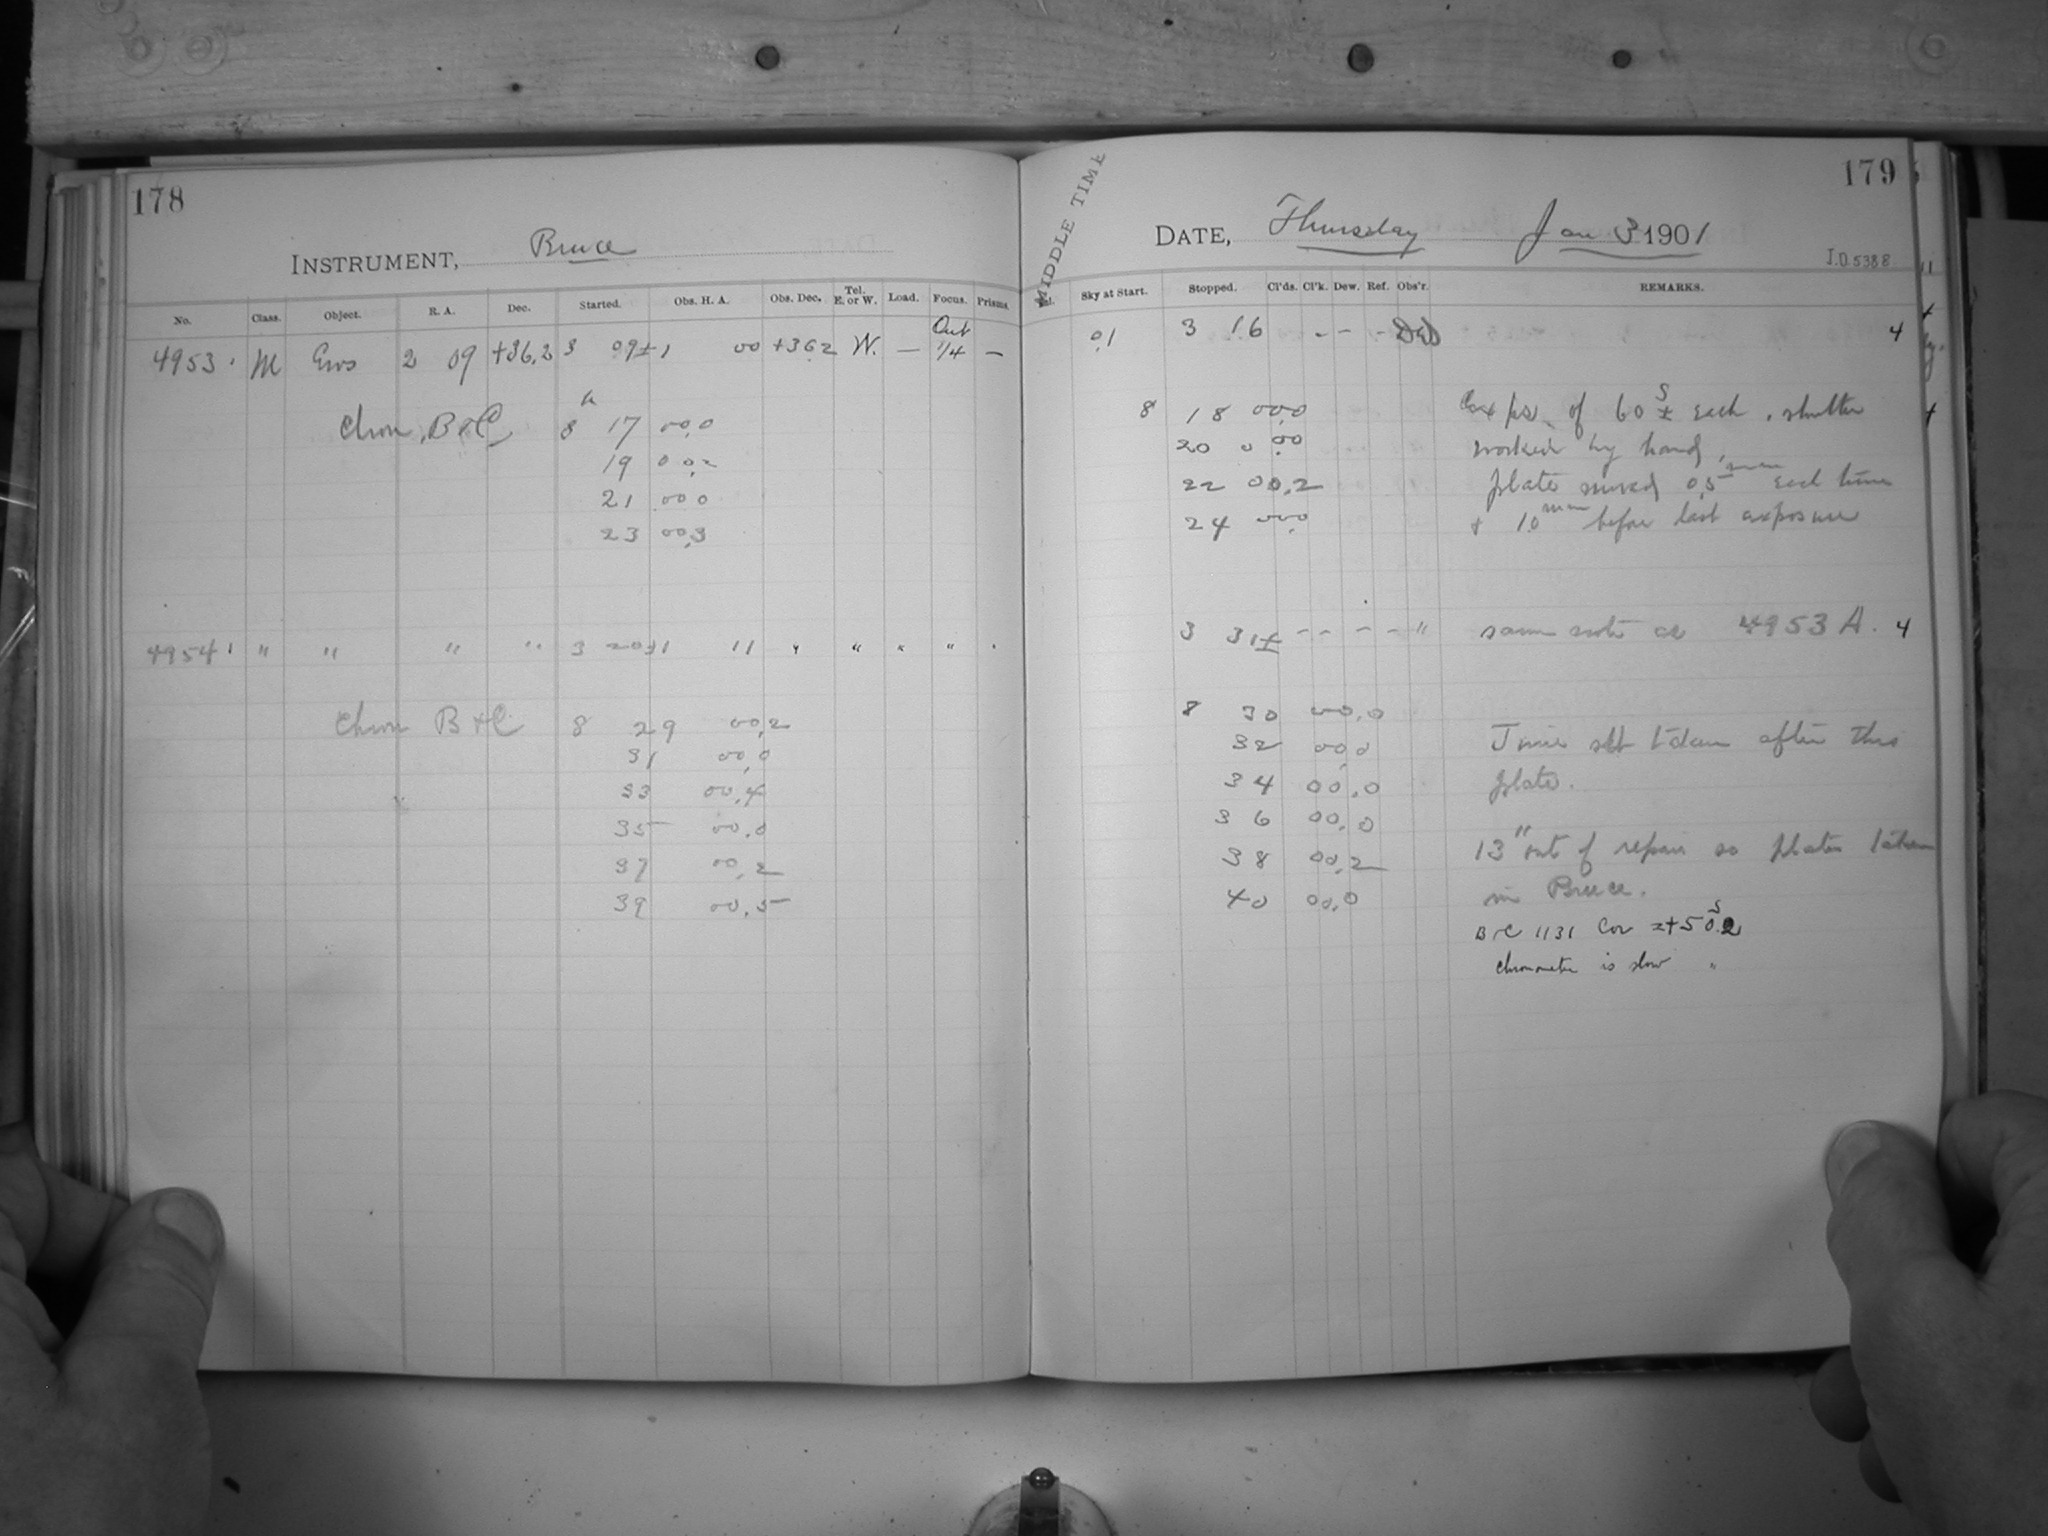 178
INSTRUMENT, Bruce
No. Class. Object. R. A. Dec. Started. Obs. H. A. Obs. Dec. Tel. E. or W. Load. Focus. Prisms
Out
4953 M Eros 2 09 +36.2 3 09± 1 00 +36.2 W. — 1/4 —
Chron. B & C 8h 17 00.0
19 00.2
21 00.0
23 00.3
4954 " " " " 3 20± 1 11 " " " " "
Chron B & C 8 29 00.2
31 00.0
33 00.4
35 00.0
37 00.2
39 00.5
179
MIDDLE TIME
DATE, Thursday Jan 3 1901
I.D. 5388
Sky at Start. Stopped. Cl'ds. Cl'k. Dew. Ref. Obs'r. REMARKS.
01 3 16 - - - 4
8 18 00.0 exps. of 60s± each, shutter
20 0 00 worked by hand,
22 00.2 plate moved 0.5mm each time
24 00.0 & 1.0mm before last exposure
3 31± - - - - " same note as 4953 A. 4
8 30 00.0
32 00.0 Time set taken after this
34 00.0 plate.
36 00.0
38 00.2 13" out of repair so plates taken
40 00.0 in Bruce.
B & C 1131 Cor = +50.2s
chronometer is slow "